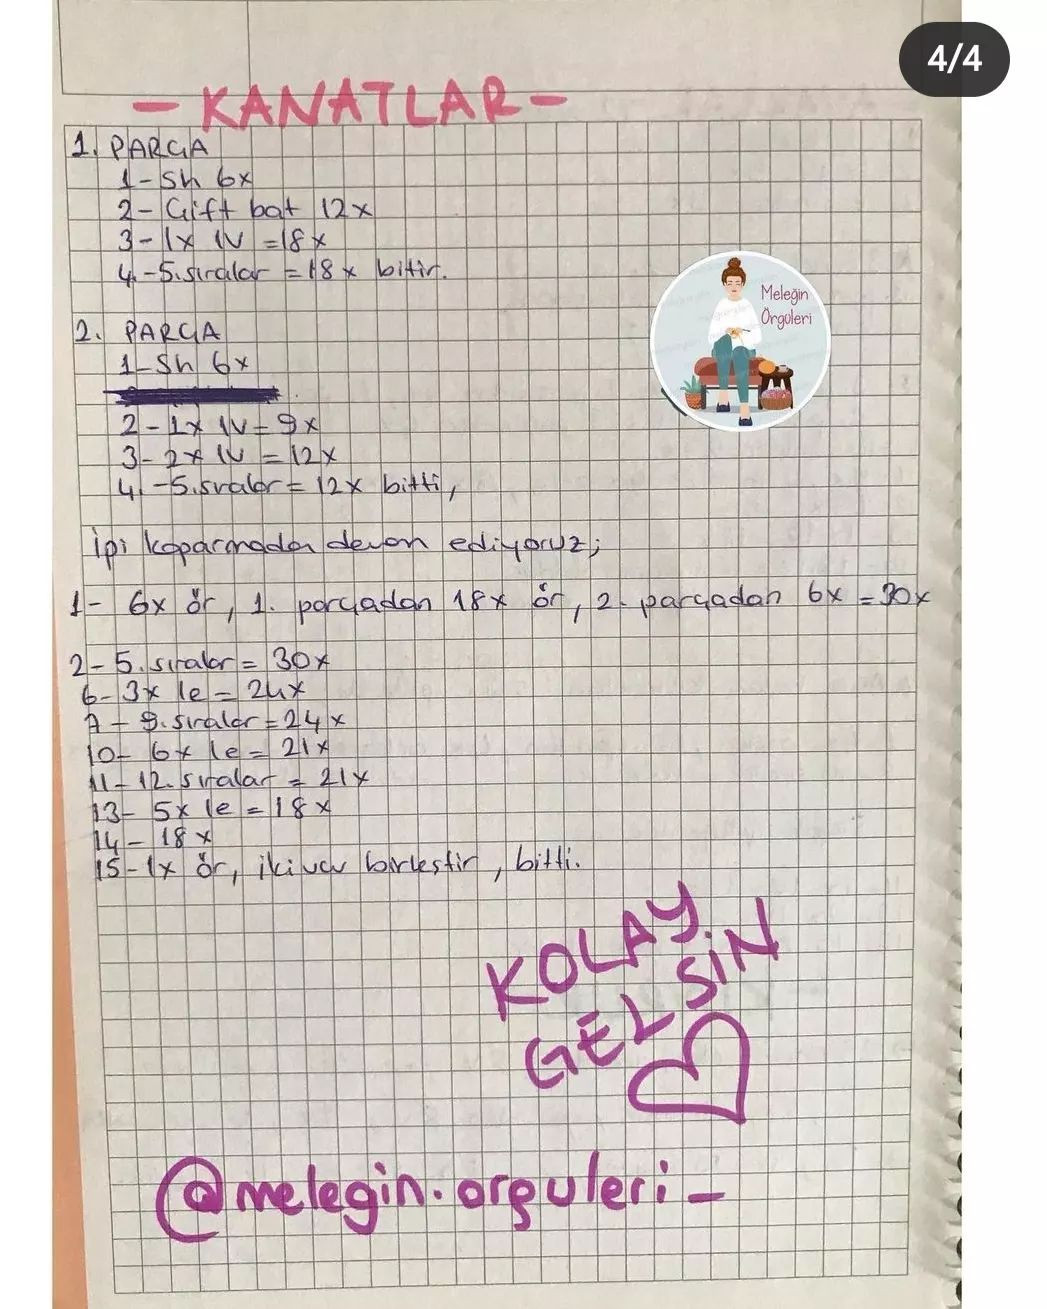 4/4
- KANATLAR -
1. PARÇA
1- Sh 6x
2- Çift bat 12x
3- 1x 1V =18x
4.-5.sıralar =18x bitir.
Meleğin
Örgüleri
2. PARÇA
1- Sh 6x
2- 1x 1V = 9x
3- 2x 1V = 12x
4.-5.sıralar = 12x bitti,
İpi koparmadan devam ediyoruz;
1- 6x ör, 1. parçadan 18x ör, 2. parçadan 6x = 30x
2-5. sıralar = 30x
6- 3x 1e = 24x
7-9. sıralar = 24x
10- 6x 1e = 21x
11-12. sıralar = 21x
13- 5x 1e = 18x
14- 18x
15- 1x ör, iki ucu birleştir, bitti.
KOLAY
GELSİN
@melegin.orguleri_